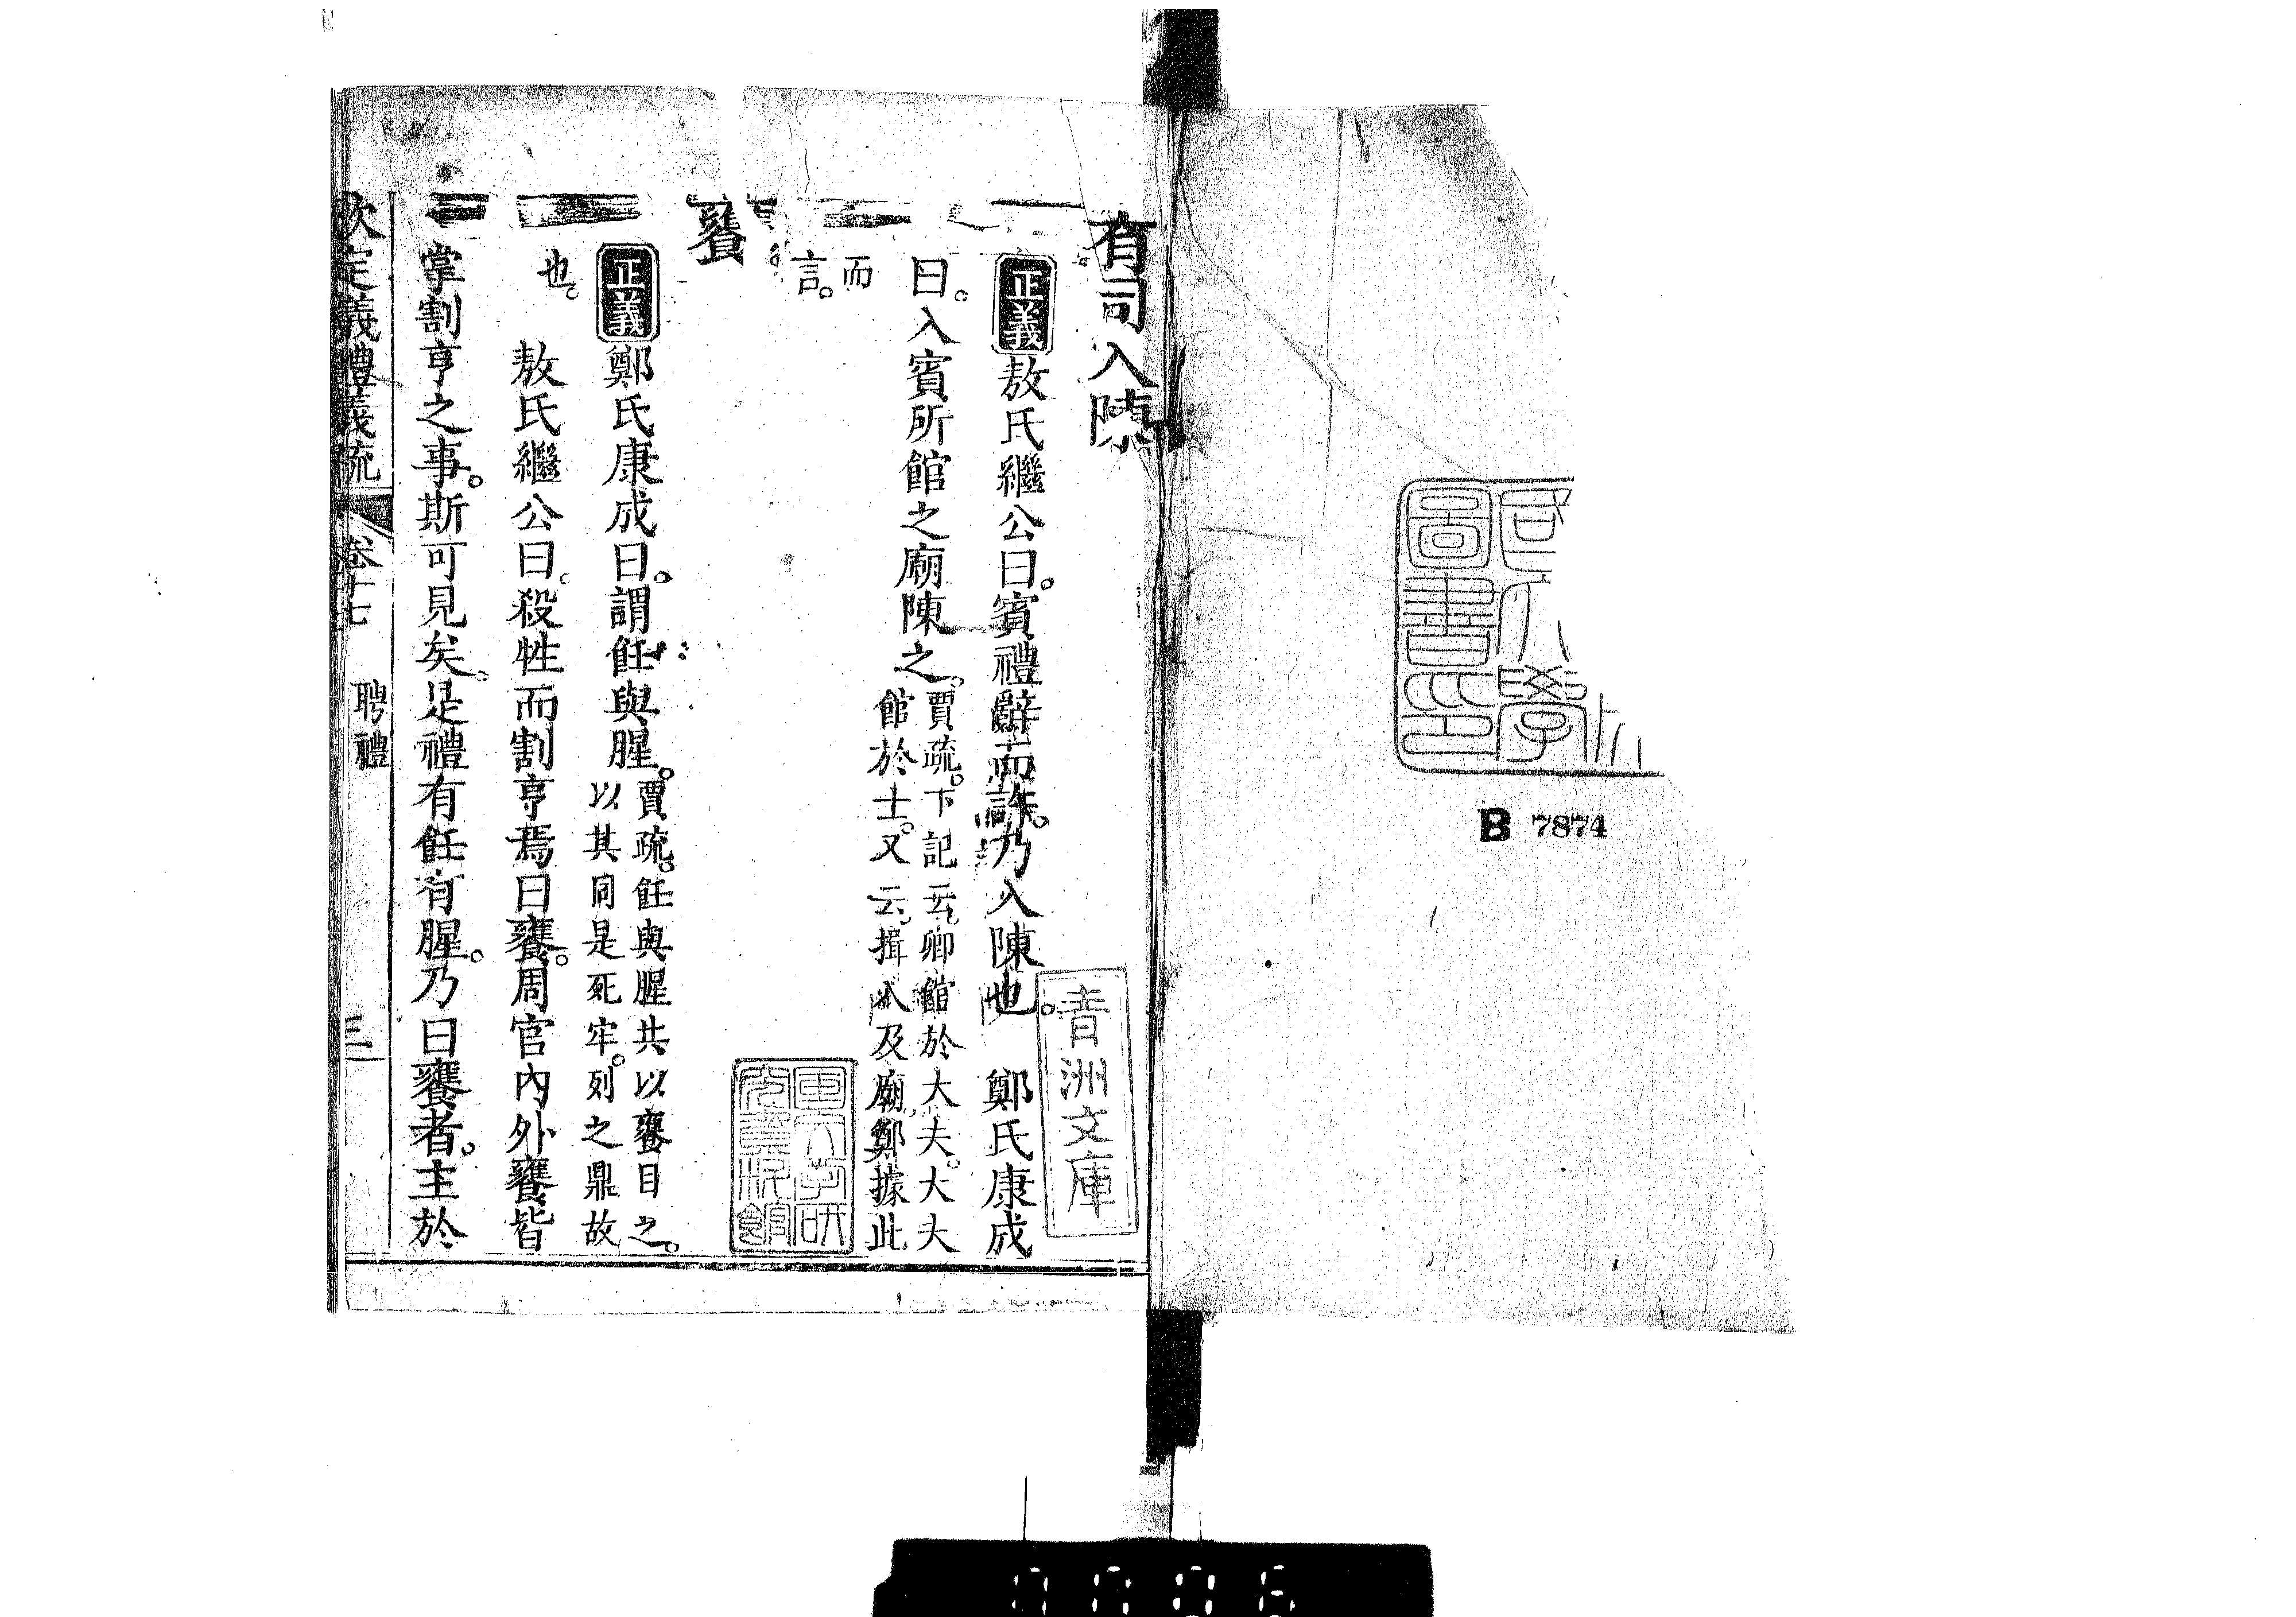 有司入陳
正義敖氏繼公曰。賓禮辭而許。乃入陳也。 鄭氏康成
曰。入賓所館之廟陳之。賈疏。下記云。卿館於大夫。大夫
館於士。又云。揖入及廟。鄭據此
而
言。
饔
正義鄭氏康成曰。謂飪與腥。賈疏。飪與腥共以饔目之。
以其同是死牢。列之鼎故
也。
敖氏繼公曰。殺牲而割亨焉曰饔。周官內外饔皆
掌割亨之事。斯可見矣。是禮有飪有腥。乃曰饔者。主於
欽定義禮義疏 卷十七 聘禮 三
青洲文庫
圖書印
B 7874